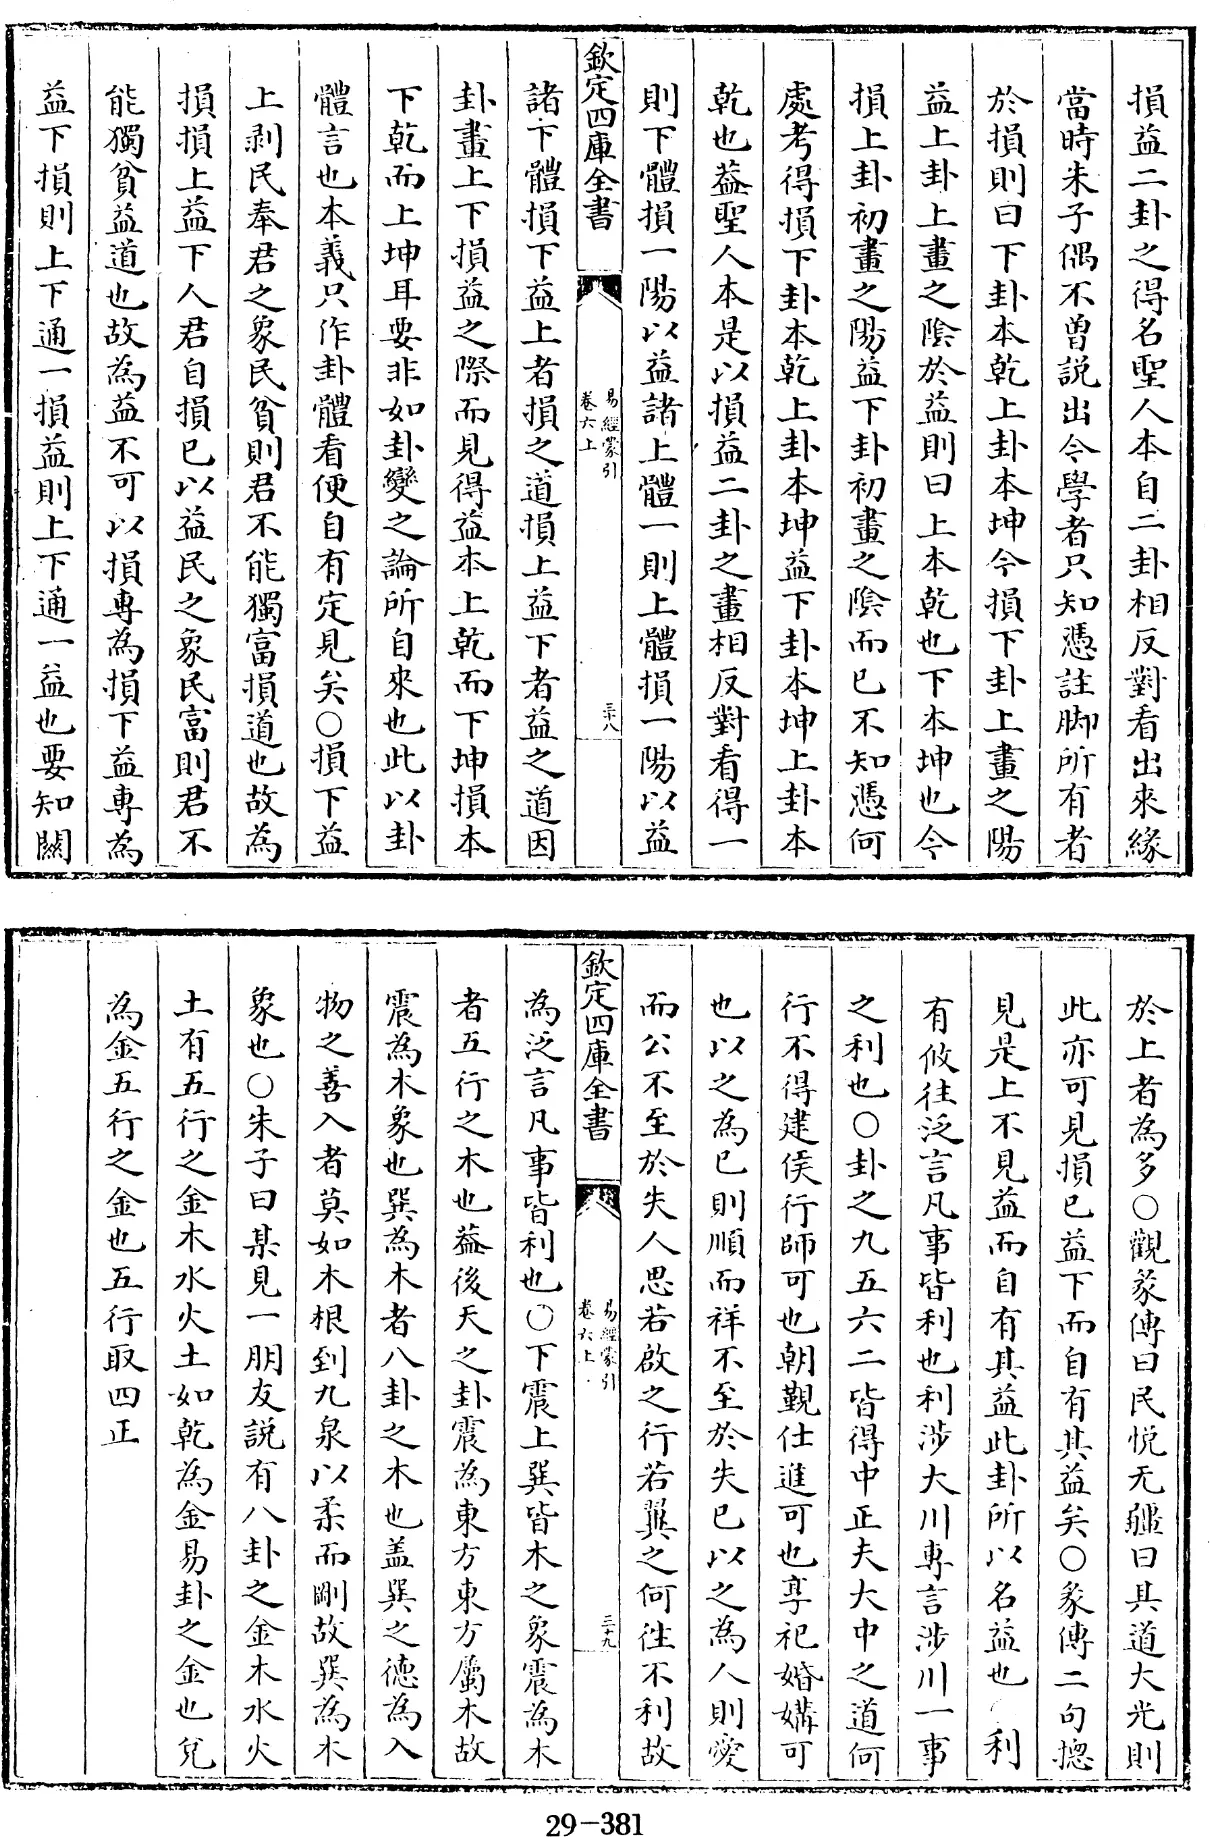 損益二卦之得名聖人本自二卦相反對看出來緣
當時朱子偶不曽説出今學者只知憑註脚所有者
於損則曰下卦本乾上卦本坤今損下卦上畫之陽
益上卦上畫之陰於益則曰上本乾也下本坤也今
損上卦初畫之陽益下卦初畫之陰而已不知憑何
處考得損下卦本乾上卦本坤益下卦本坤上卦本
乾也葢聖人本是以損益二卦之畫相反對看得一
則下體損一陽以益諸上體一則上體損一陽以益
欽定四庫全書
易經蒙引
卷六上
三十八
諸下體損下益上者損之道損上益下者益之道因
卦畫上下損益之際而見得益本上乾而下坤損本
下乾而上坤耳要非如卦變之論所自來也此以卦
體言也本義只作卦體看便自有定見矣○損下益
上剥民奉君之象民貧則君不能獨富損道也故為
損損上益下人君自損已以益民之象民富則君不
能獨貧益道也故為益不可以損專為損下益專為
益下損則上下通一損益則上下通一益也要知關
於上者為多○觀彖傳曰民悦无疆曰其道大光則
此亦可見損已益下而自有其益矣○彖傳二句摠
見是上不見益而自有其益此卦所以名益也○利
有攸往泛言凡事皆利也利涉大川專言涉川一事
之利也○卦之九五六二皆得中正夫大中之道何
行不得建侯行師可也朝覲仕進可也享祀婚媾可
也以之為已則順而祥不至於失已以之為人則愛
而公不至於失人思若啟之行若翼之何往不利故
欽定四庫全書
易經蒙引
卷六上
三十九
為泛言凡事皆利也○下震上巽皆木之象震為木
者五行之木也葢後天之卦震為東方東方屬木故
震為木象也巽為木者八卦之木也盖巽之德為入
物之善入者莫如木根到九泉以柔而剛故巽為木
象也○朱子曰某見一朋友説有八卦之金木水火
土有五行之金木水火土如乾為金易卦之金也兌
為金五行之金也五行取四正
29-381